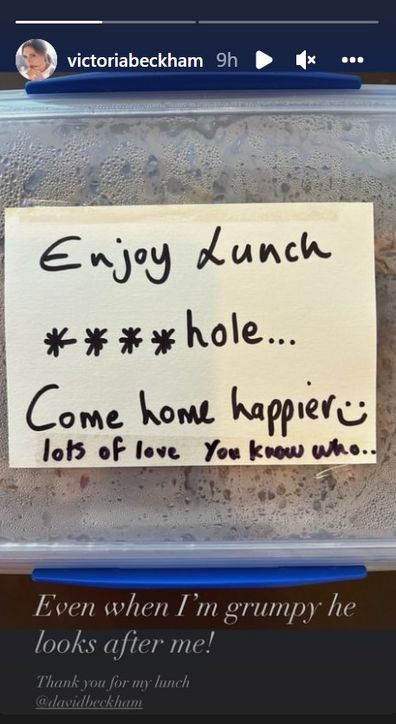 victoriabeckham 9h
Enjoy Lunch
****hole...
Come home happier
lots of love You know who..
Even when I'm grumpy he
looks after me!
Thank you for my lunch
@davidbeckham